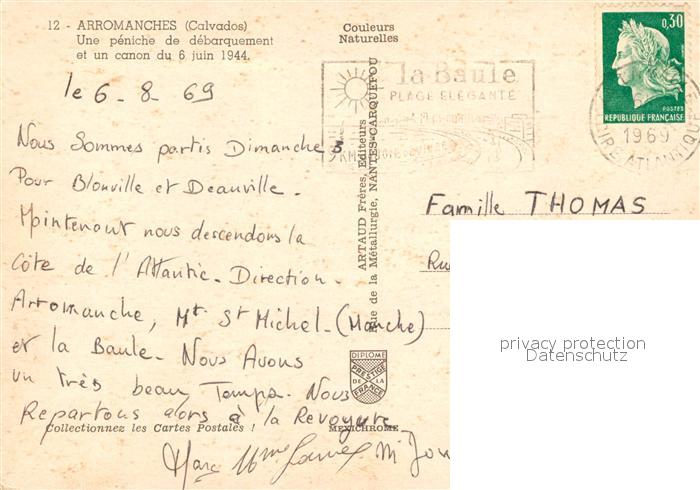 12 - ARROMANCHES (Calvados)
Une péniche de débarquement
et un canon du 6 juin 1944.
Couleurs
Naturelles
0,30
POSTES
REPUBLIQUE FRANÇAISE
la Baule
PLAGE ELEGANTE
1969
LOIRE ATLANTIQUE
le 6 - 8 - 69
Nous Sommes partis Dimanche 3
Pour Blonville et Deauville.
Maintenant nous descendons la
Côte de l'Atlantic. Direction.
Arromanche, Mt St Michel. (Manche)
et la Baule. Nous Avons
un très beau Temps. Nous
Repartons alors à la Revoyure
Marc Mme
ARTAUD Frères, Editeurs
Rue de la Métallurgie, NANTES-CARQUEFOU
Famille THOMAS
Ru
privacy protection
Datenschutz
DIPLOME
PRESTIGE
DE LA
FRANCE
Collectionnez les Cartes Postales !
MEXICHROME